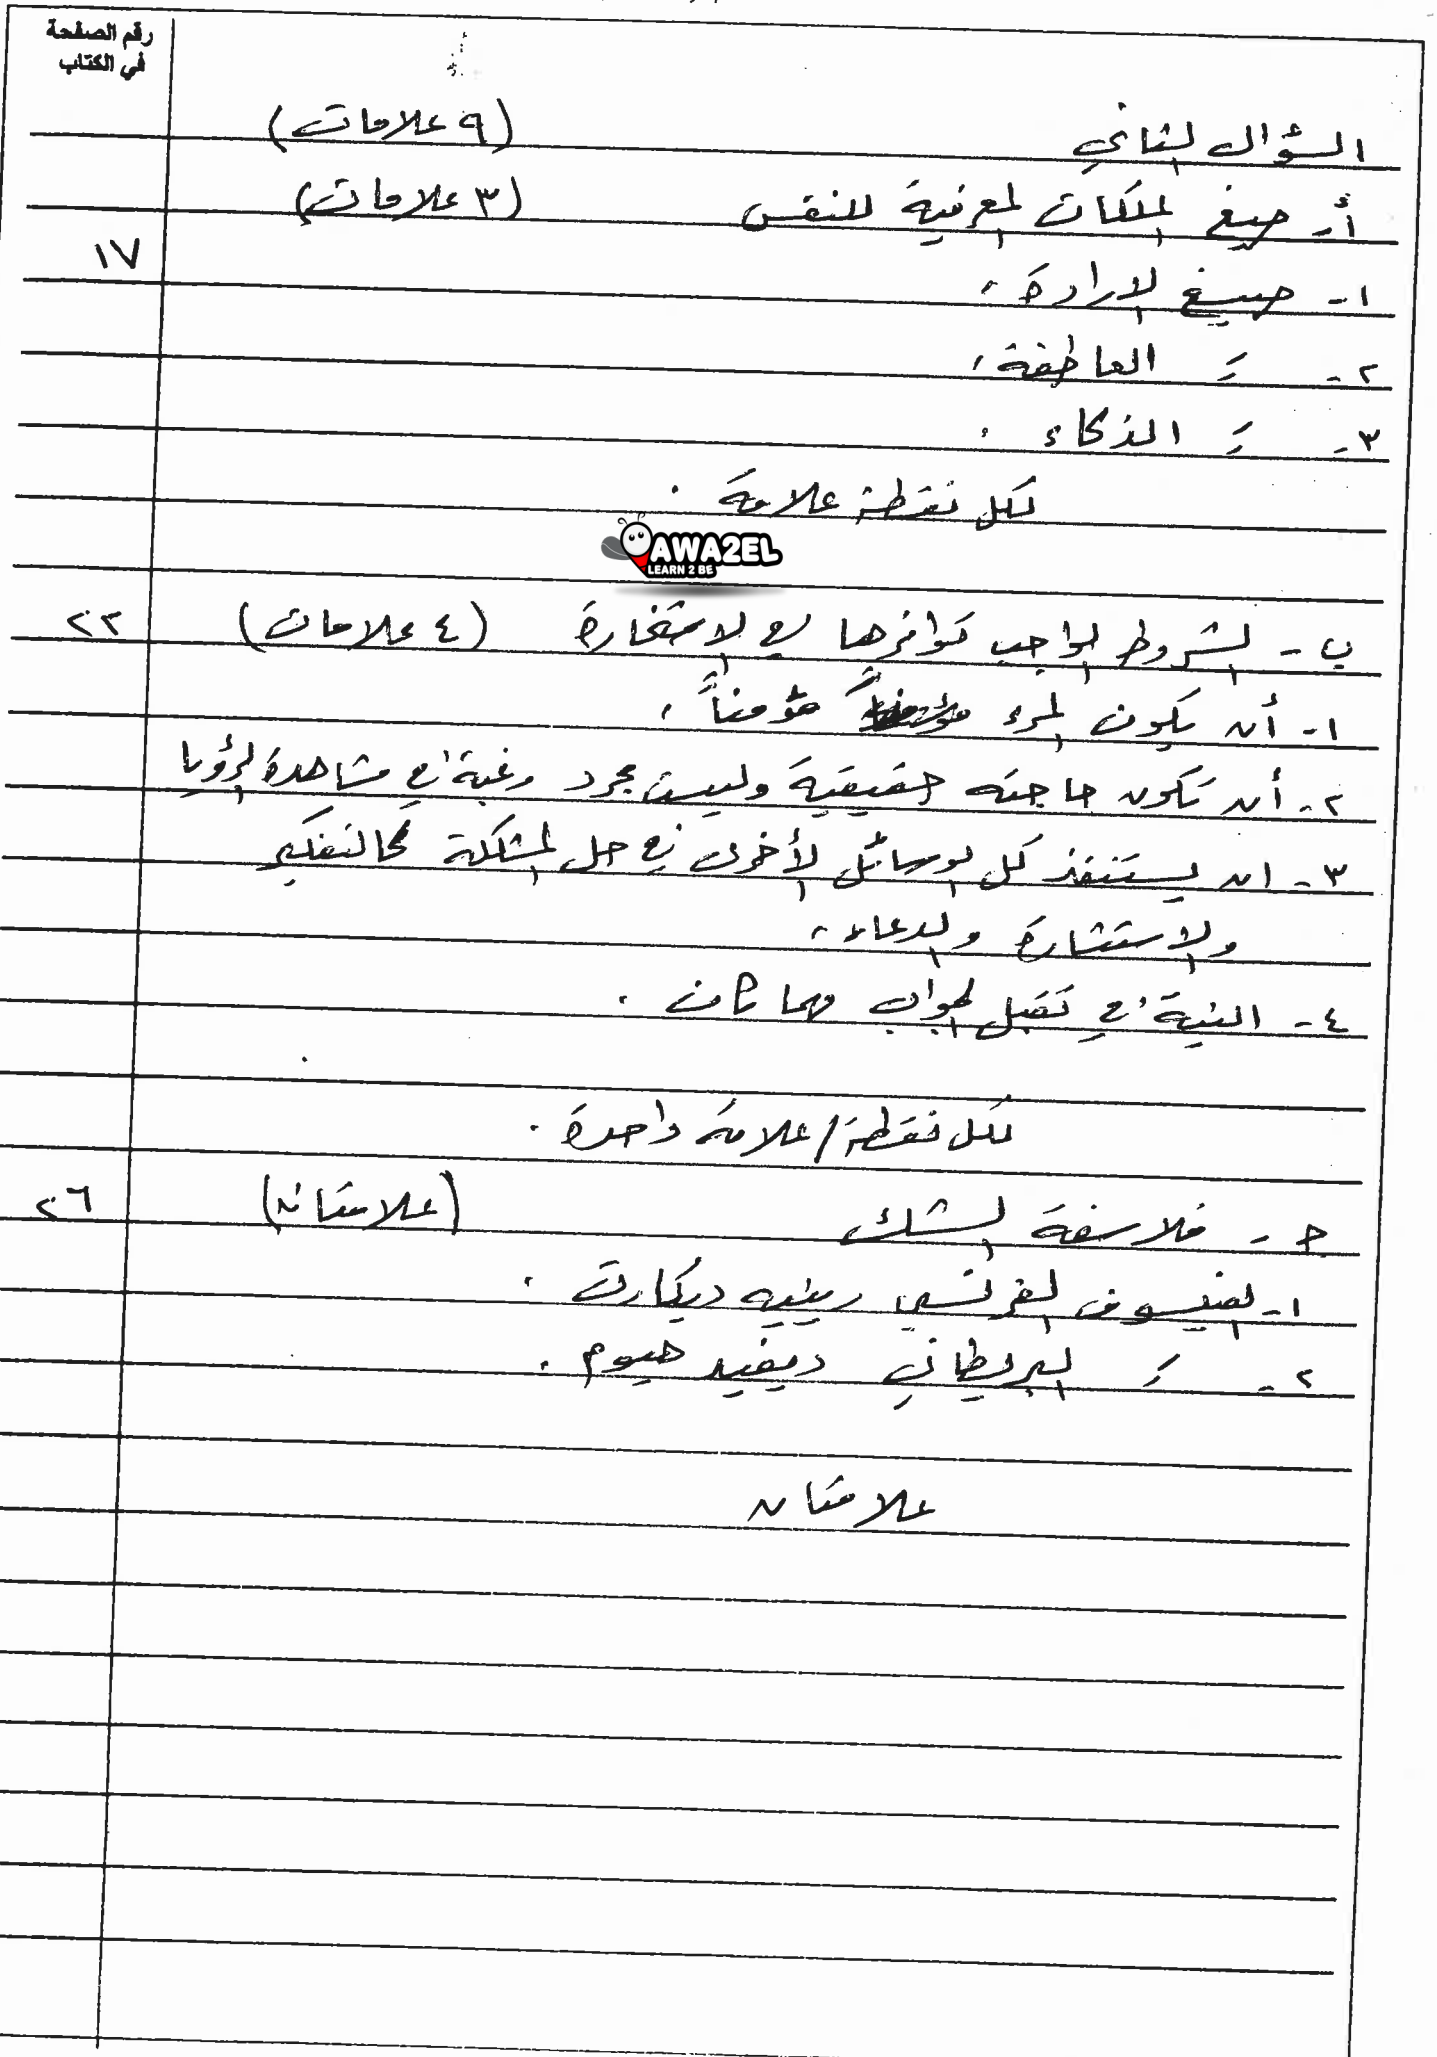 رقم الصفحة
في الكتاب
السؤال الثاني (٩ علامات)
أ- صيغ الملكات المعرفية للنفس (٣ علامات)
١٧
١- صيغ الإرادة،
٢- = العاطفة،
٣- = الذكاء .
لكل نقطة علامة .
AWA2EL
LEARN 2 BE
ب- الشروط الواجب توافرها في الاستخارة (٤ علامات) ٢٢
١- أن يكون المرء مؤمناً،
٢- أن تكون حاجته حقيقية وليست مجرد رغبة في مشاهدة الرؤيا
٣- ان يستنفذ كل الوسائل الأخرى في حل المشكلة كالتفكير
والاستشارة والدعاء،
٤- النية في تقبل الجواب مهما كان .
لكل نقطة/علامة واحدة .
ج- فلاسفة الشك (علامتان) ٢٦
١- الفيلسوف الفرنسي رينيه ديكارت .
٢- = البريطاني ديفيد هيوم .
علامتان